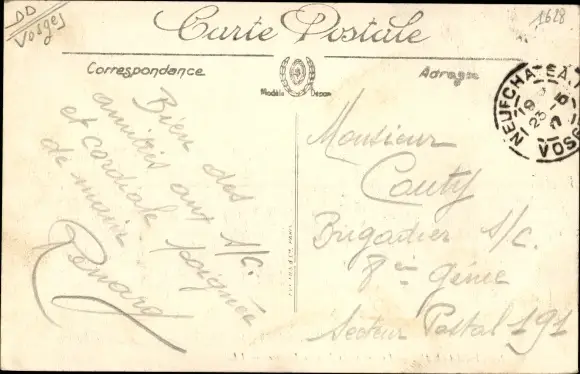 DD
Vosges
1628
Carte Postale
Correspondance
Adresse
Modèle Déposé
Bien des
amitiés aux S/C.
et cordiale poignée
de main
Renard
Monsieur
Couty
Brigadier S/C.
8e Génie
Secteur Postal 191
NEUFCHATEA
19
25
VOSG